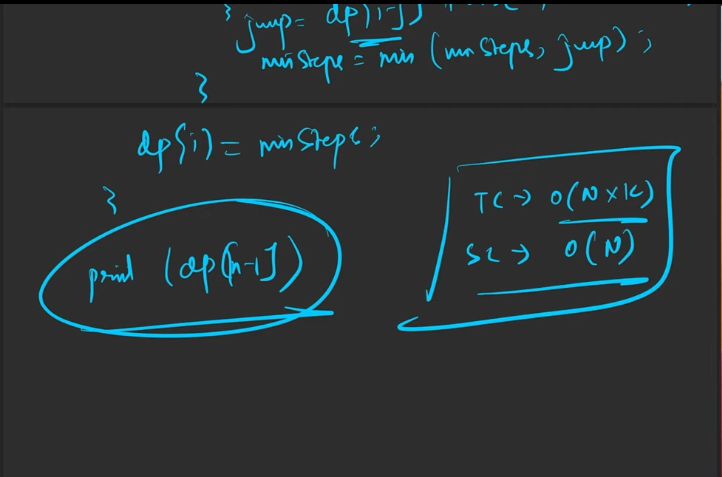 } jump = dp[i-j]
minSteps = min (minSteps, jump) ;
}
dp[i] = minSteps ;
}
print (dp[n-1])
TC → O(N x K)
SC → O(N)